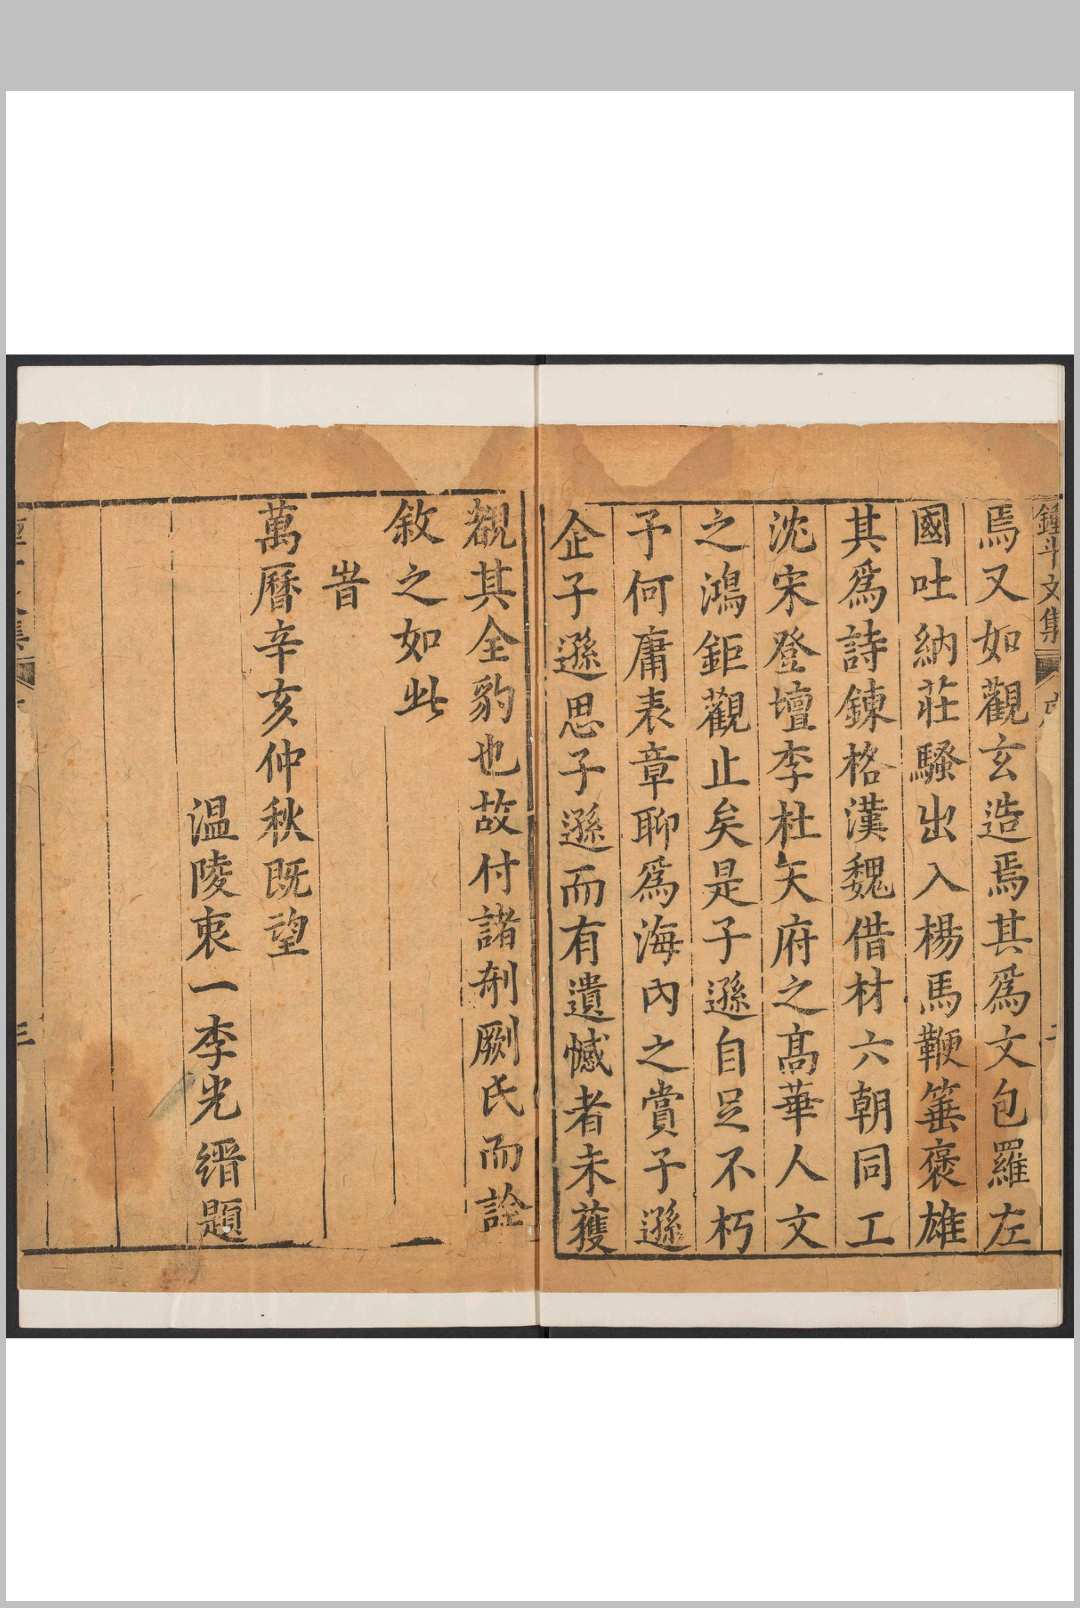 鍾斗文集
焉又如觀玄造焉其爲文包羅左
國吐納莊騷出入楊馬鞭箠褒雄
其爲詩鍊格漢魏借材六朝同工
沈宋登壇李杜天府之高華人文
之鴻鉅觀止矣是子遜自足不朽
予何庸表章聊爲海內之賞子遜
企子遜思子遜而有遺憾者未獲
觀其全豹也故付諸剞劂氏而詮
敘之如此
旹
萬曆辛亥仲秋既望
温陵衷一李光縉題
三